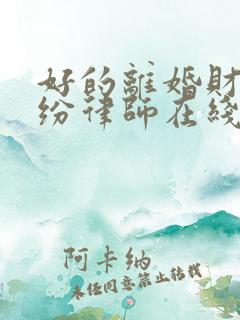 好的離婚財
紛律師在綫
阿卡纳
未经同意禁止转载